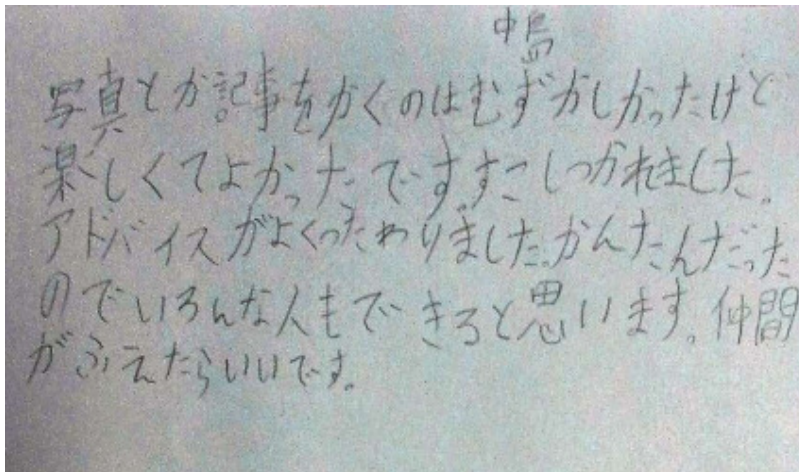 中島
写真とか記事をかくのはむずかしかったけど
楽しくてよかったです。すこしつかれました。
アドバイスがよくつたわりました。かんたんだった
のでいろんな人もできると思います。仲間
がふえたらいいです。